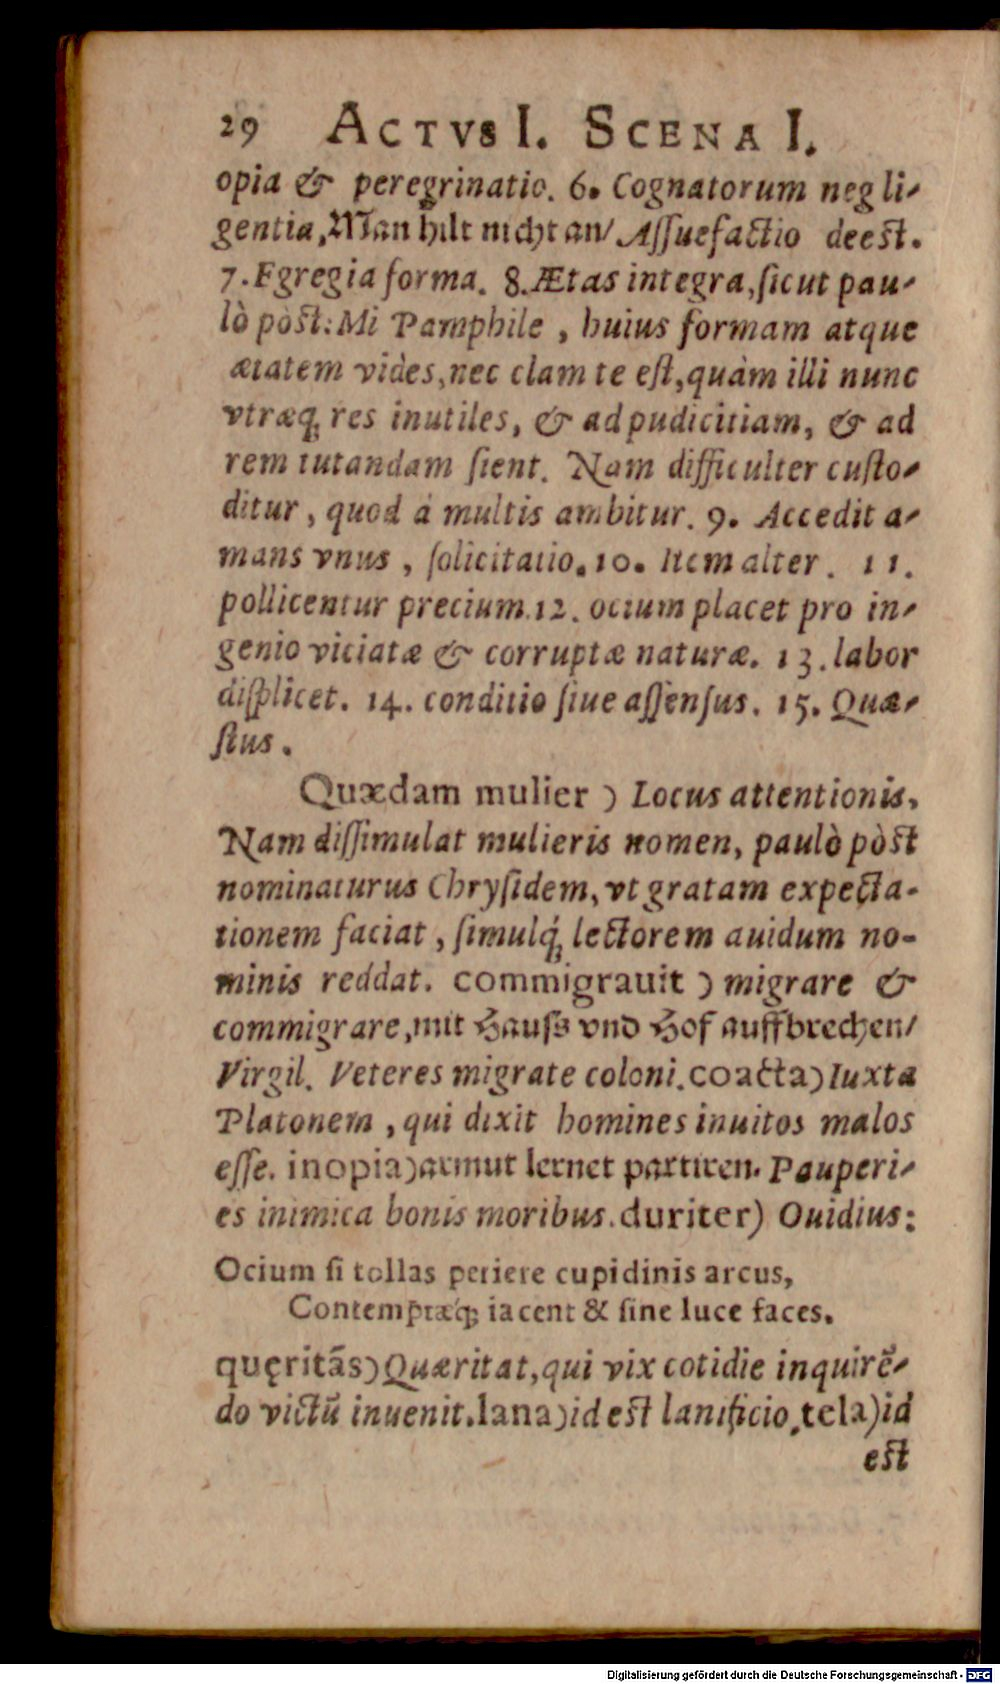 29 ACTVS I. SCENA I.
opia & peregrinatio. 6. Cognatorum negli-
gentia, Man hilt nicht an/ Aſſuefactio deeſt.
7. Egregia forma. 8. Ætas integra, ſicut pau-
lò pòſt: Mi Pamphile, huius formam atque
ætatem vides, nec clam te eſt, quàm illi nunc
vtræq; res inutiles, & ad pudicitiam, & ad
rem tutandam ſient. Nam difficulter cuſto-
ditur, quod à multis ambitur. 9. Accedit a-
mans vnus, ſolicitatio. 10. Item alter. 11.
pollicentur precium. 12. ocium placet pro in-
genio viciatæ & corruptæ naturæ. 13. labor
diſplicet. 14. conditio ſiue aſſenſus. 15. Quæ-
ſtus.
Quædam mulier) Locus attentionis,
Nam diſſimulat mulieris nomen, paulò pòſt
nominaturus Chryſidem, vt gratam expecta-
tionem faciat, ſimulq́; lectorem auidum no-
minis reddat. commigrauit) migrare &
commigrare, mit Hauſs vnd Hof auffbrechen/
Virgil. Veteres migrate coloni. coacta) Iuxta
Platonem, qui dixit homines inuitos malos
eſſe. inopia) armut lernet partiren. Pauperi-
es inimica bonis moribus. duriter) Ouidius:
Ocium ſi tollas periere cupidinis arcus,
Contemptæq́; iacent & ſine luce faces.
quęritãs) Quæritat, qui vix cotidie inquirẽ-
do victũ inuenit. lana) id eſt lanificio, tela) id
eſt
Digitalisierung gefördert durch die Deutsche Forschungsgemeinschaft - DFG